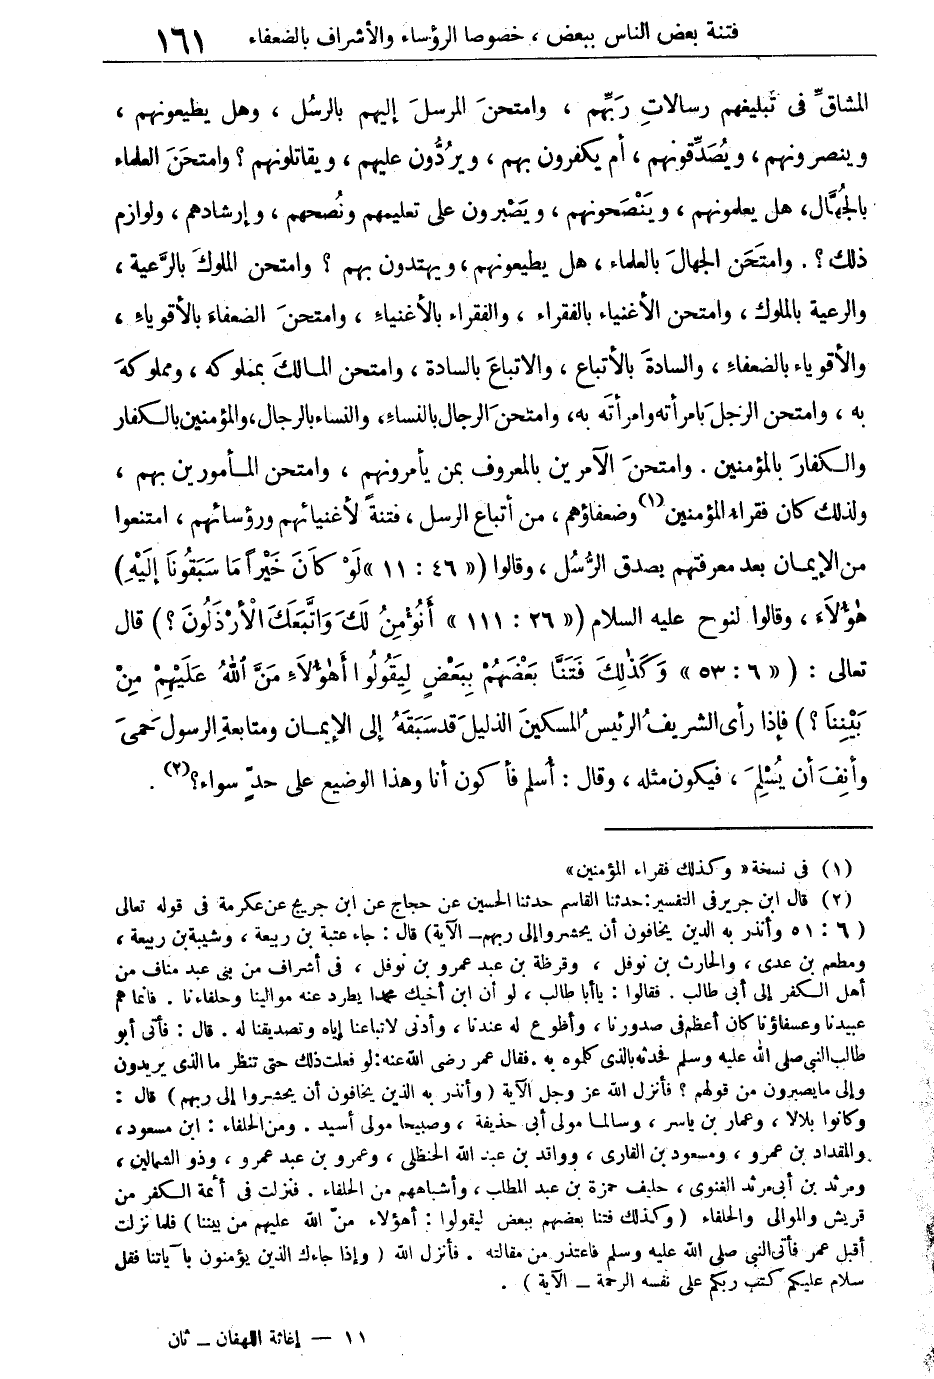 فتنة بعض الناس ببعض ، خصوصا الرؤساء والأشراف بالضعفاء ١٦١
المشاقِّ فى تَبليغهم رسالاتِ رَبِّهم ، وامتحنَ المرسلَ إليهم بالرسُل ، وهل يطيعونهم ،
وينصرونهم ، ويُصَدِّقونهم ، أم يكفرون بهم ، ويردُّون عليهم ، ويقاتلونهم ؟ وامتحَنَ العلماء
بالجُهَّال، هل يعلمونهم ، ويَنْصَحونهم ، ويَصْبرون على تعليمهم ونُصحهم ، وإرشادهم ، ولوازم
ذلك ؟ . وامتَحَن الجهالَ بالعلماء ، هل يطيعونهم ، ويهتدون بهم ؟ وامتحن الملوكَ بالرَّعية ،
والرعية بالملوك ، وامتحن الأغنياء بالفقراء ، والفقراء بالأغنياءِ ، وامتحنَ الضعفاءَ بالأقوياءِ ،
والأقوياء بالضعفاءِ ، والسادةَ بالأتباع ، والاتباعَ بالسادة ، وامتحن المالكَ بمملوكه ، ومملوكهَ
به ، وامتحن الرجلَ بامرأته وامرأتَه به، وامتحنَ الرجالَ بالنساءِ، والنساء بالرجال، والمؤمنين بالكفار
والكفارَ بالمؤمنين . وامتحنَ الآمرين بالمعروف بمن يأمرونهم ، وامتحن المأمورين بهم ،
ولذلك كان فقراء المؤمنين(١) وضعفاؤهم ، من أتباع الرسل ، فتنةً لأغنيائهم ورؤسائهم ، امتنعوا
من الإيمان بعد معرفتهم بصدق الرُّسُل ، وقالوا («٤٦ : ١١» لَوْ كاَنَ خَيْراً مَا سَبَقُونَا إلَيْهِ)
هٰؤُلاَءَ ، وقالوا لنوح عليه السلام («٢٦ : ١١١» أَنُؤْمِنُ لَكَ وَاتَّبَعَكَ الْأَرْذَلُونَ ؟) قال
تعالى : («٦ : ٥٣» وَكَذٰلِكَ فَتَنَّا بَعْضَهُمْ بِبَعْضٍ لِيَقُولُوا أَهٰؤُلاَءِ مَنَّ اللهُ عَلَيْهِمْ مِنْ
بَيْنِنَا ؟) فإذا رأى الشريفُ الرئيسُ المسكينَ الذليلَ قد سَبَقَهُ إلى الإيمان ومتابعةِ الرسول حَمِىَ
وأنِفَ أن يُسْلِمَ ، فيكون مثله ، وقال : أُسلم فأكون أنا وهذا الوضيع على حدٍّ سواء ؟(٢) .
(١) فى نسخة « وكذلك فقراء المؤمنين»
(٢) قال ابن جرير فى التفسير: حدثنا القاسم حدثنا الحسين عن حجاج عن ابن جريج عن عكرمة فى قوله تعالى
( ٦ : ٥١ وأنذر به الذين يخافون أن يحشروا إلى ربهم ــ الآية) قال : جاء عتبة بن ربيعة ، وشيبة بن ربيعة ،
ومطعم بن عدى ، والحارث بن نوفل ، وقرظة بن عبد عمرو بن نوفل ، فى أشراف من بنى عبد مناف من
أهل الكفر إلى أبى طالب . فقالوا : يا أبا طالب ، لو أن ابن أخيك محمدا يطرد عنه موالينا وحلفاءنا . فانما هم
عبيدنا وعسفاؤنا كان أعظم فى صدورنا ، وأطوع له عندنا ، وأدنى لاتباعنا إياه وتصديقنا له . قال : فأتى أبو
طالب النبى صلى الله عليه وسلم فحدثه بالذى كلموه به . فقال عمر رضى الله عنه: لو فعلت ذلك حتى تنظر ما الذى يريدون
وإلى ما يصبرون من قولهم ؟ فأنزل الله عز وجل الآية ( وأنذر به الذين يخافون أن يحشروا إلى ربهم ) قال :
وكانوا بلالا ، وعمار بن ياسر ، وسالما مولى أبى حذيفة ، وصبيحا مولى أسيد . ومن الحلفاء : ابن مسعود ،
والمقداد بن عمرو ، ومسعود بن القارى ، وواقد بن عبد الله الحنظلى ، وعمرو بن عبد عمرو ، وذو الشمالين ،
ومرثد بن أبى مرثد الغنوى ، حليف حمزة بن عبد المطلب ، وأشباههم من الحلفاء . فنزلت فى أئمة الكفر من
قريش والموالى والحلفاء ( وكذلك فتنا بعضهم ببعض ليقولوا : أهؤلاء منّ الله عليهم من بيننا ) فلما نزلت
أقبل عمر فأتى النبى صلى الله عليه وسلم فاعتذر من مقالته . فأنزل الله ( وإذا جاءك الذين يؤمنون بآياتنا فقل
سلام عليكم كتب ربكم على نفسه الرحمة ــ الآية ) .
١١ — إغاثة اللهفان ــ ثان